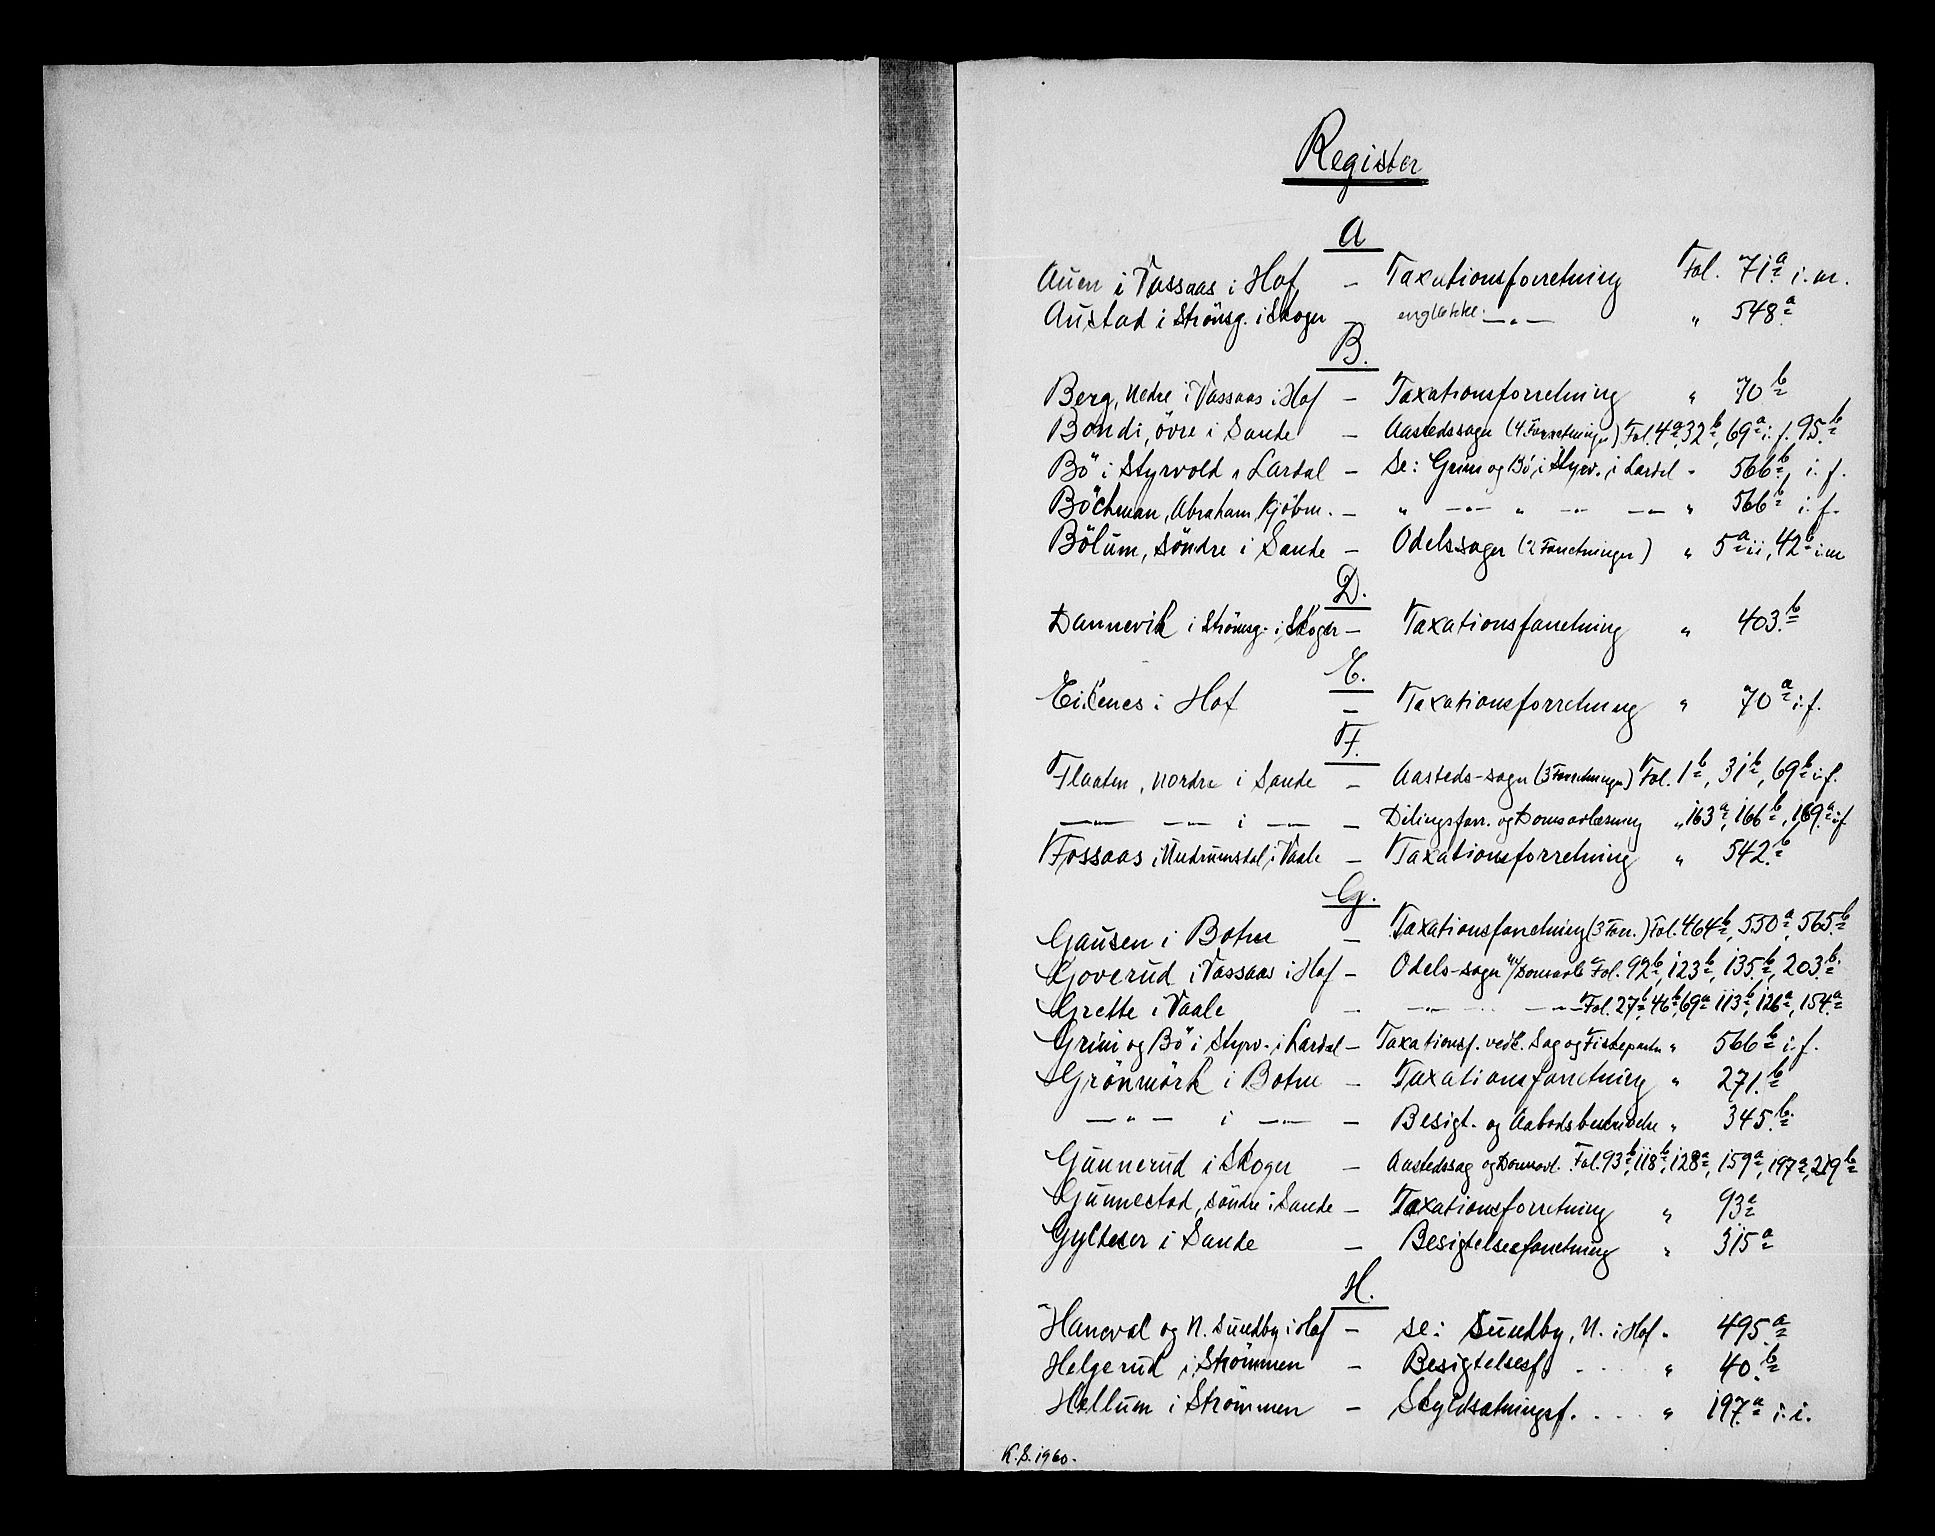 Register
A
Auen i Vassaas i Hof – Taxationsforretning Fol. 71a i.m.
Austad i Strömsg. i Skoger – engløkke –"– " 548a
B.
Berg, nedre i Vassaas i Hof – Taxationsforretning " 70b
Bondi, övre i Sande – Aastedssagn (4 Forretninger) Fol. 4a, 32b, 69a i.f. 95b
Bö i Styrvold i Lardal – se: Grim og Bö i Styrv. i Lardal - 566b i.f.
Böchman, Abraham, Kjöbm. – " –"– " –"– –"– " 566b i.f.
Bölum, söndre i Sande – Odelssager (2 Forretninger) " 5a i.i, 42b i.m
D.
Dannevik i Strömsg. i Skoger – Taxationsforretning " 403b
E.
Eikenes i Hof – Taxationsforretning " 70a i.f.
F.
Flaaten, nordre i Sande – Aasteds-sagn (3 Forretninger) Fol. 1b, 31b, 69b i.f.
–"– –"– i –"– – Delingsforr. og Domsavlæsning " 163a, 166b, 169a i.f
Fossaas i Undrumsdal i Vaale – Taxationsforretning " 542b
G.
Gausen i Botne – Taxationsforretning (3 Forr.) Fol. 464b, 550a, 565b
Goverud i Vassaas i Hof – Odels-sagn m/Domsavl. Fol. 92b, 123b, 135b, 203b
Grette i Vaale – –"– –"– Fol. 27b, 46b, 69a, 113b, 126a, 154a
Grim og Bö i Styrv. i Lardal – Taxationsf. vedk. Sag og " 566b i.f.
Grönmörk i Botne – Taxationsforretning " 271b
–"– i –"– – Besigt. og Aabodsbeskrivelse " 345b
Gunnerud i Skoger – Aastedssag og Domsavl. Fol. 93b, 118b, 128a, 159a, 197a, 219b
Gunnestad, söndre i Sande – Taxationsforretning " 93a
Gylteser i Sande – Besigtelsesforretning " 315a
H.
Haneval og N. Sundby i Hof – se: Sundby, N. i Hof " 495a
Helgerud i Strömmen – Besigtelsesf. . . . " 40b
Hellum i Strömmen – Skyldsætningsf. . . . " 197a i.i.
K.S. 1960.